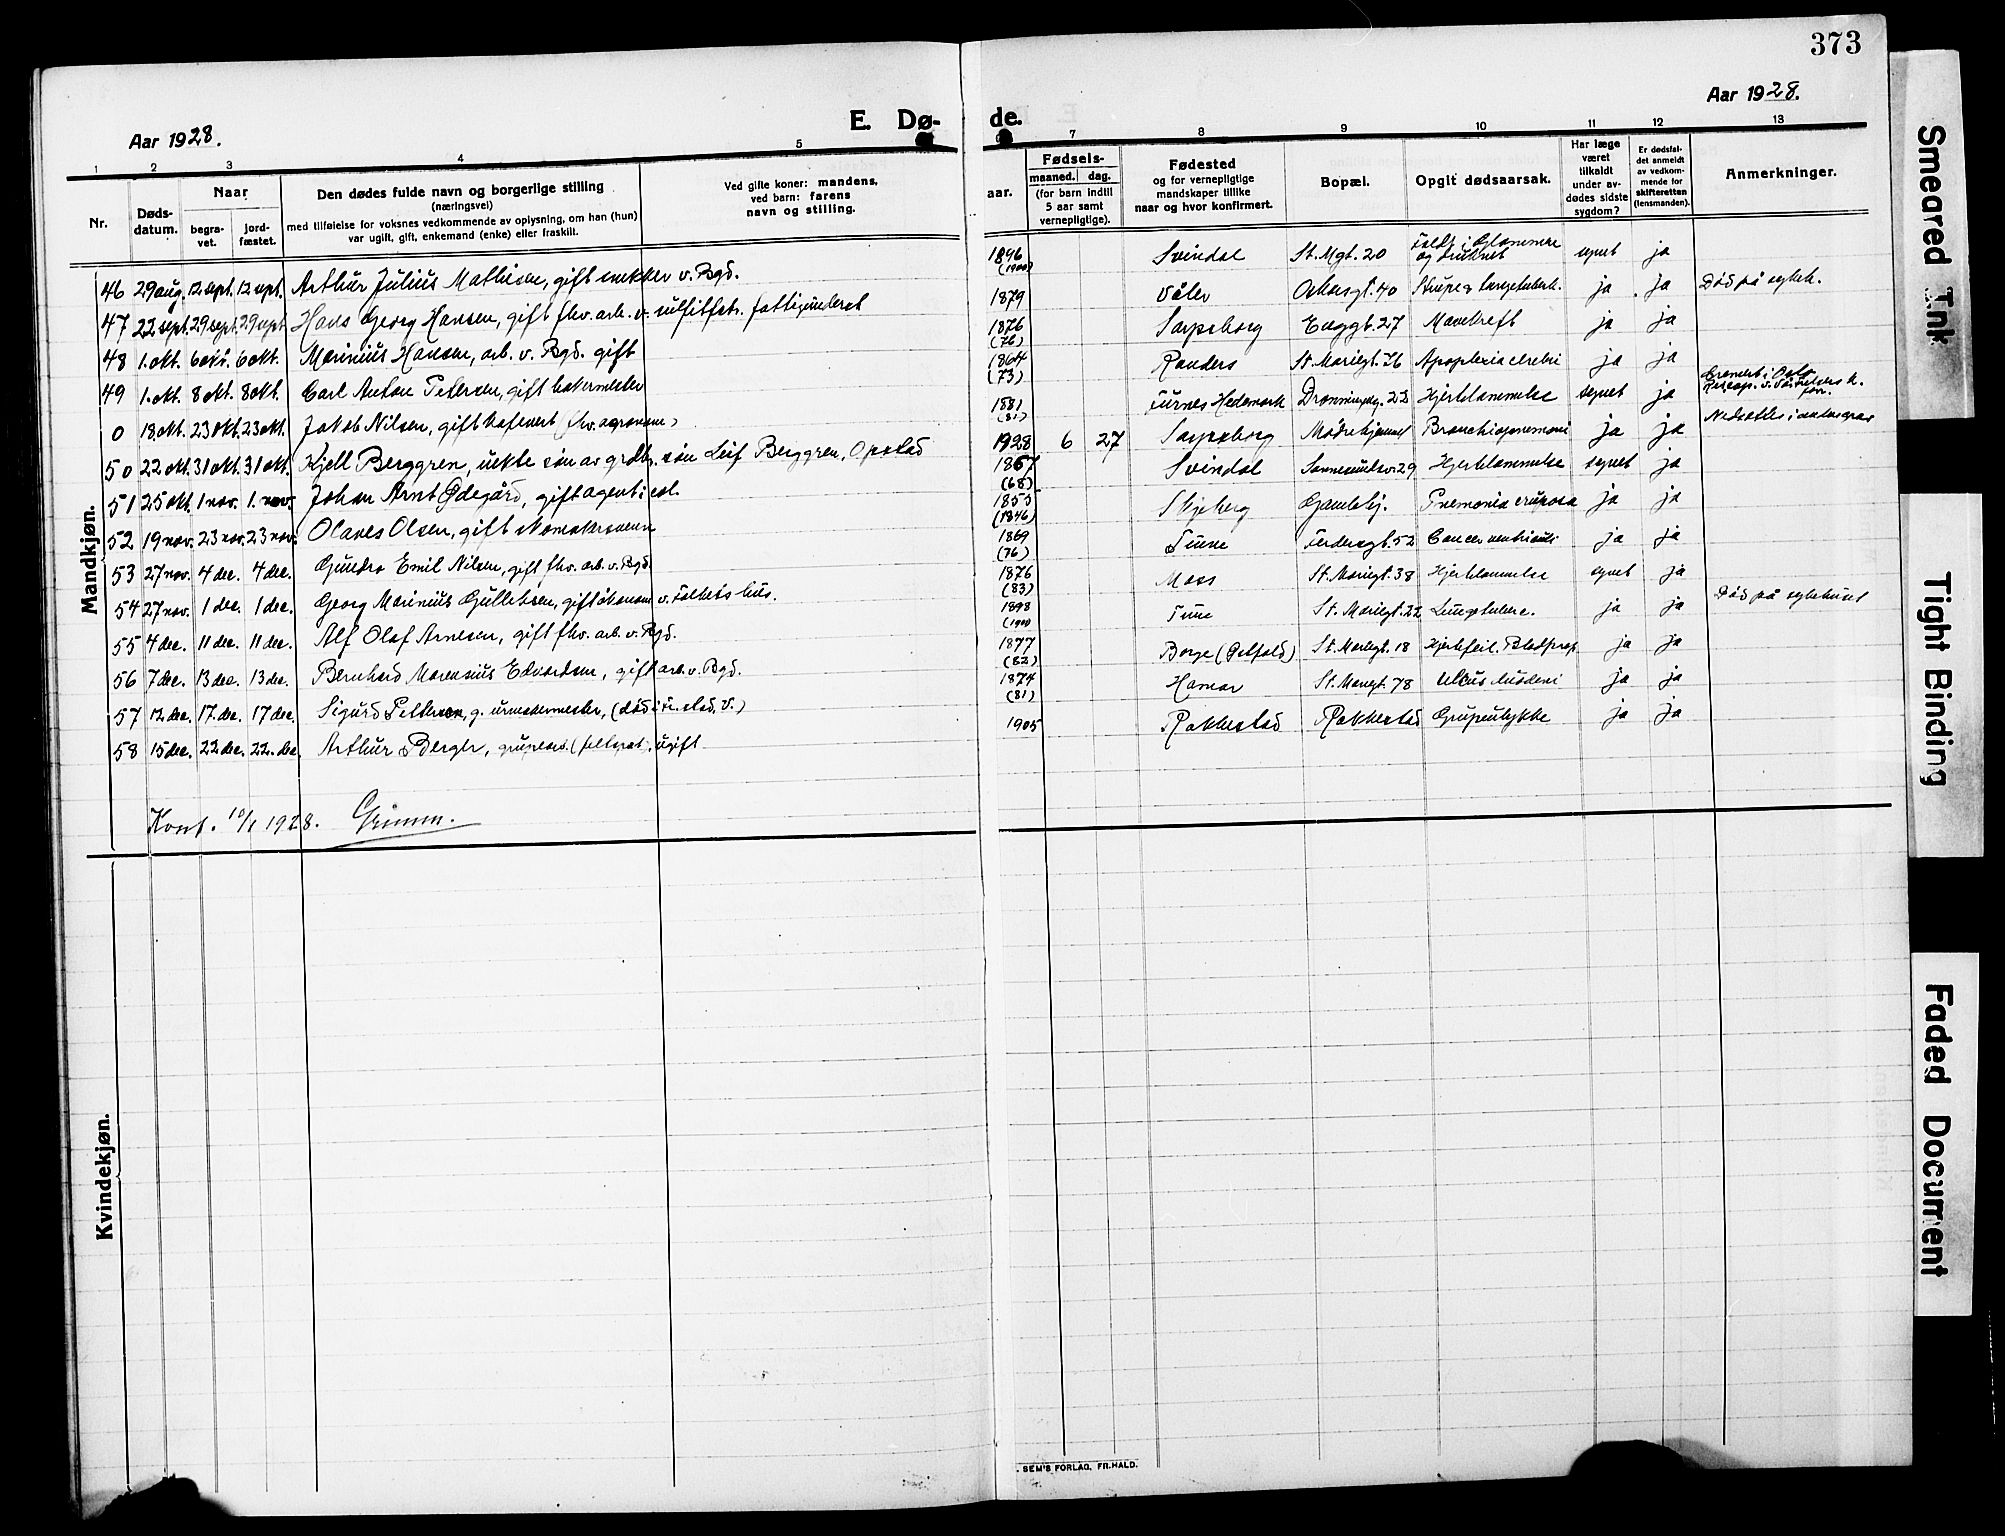 373
Aar 1928.
E. Dø-
de.
Aar 1928.
1 2 3 4 5 7 8 9 10 11 12 13
Nr.
Døds-
datum.
Naar
begra-
vet.
jord-
fæstet.
Den dødes fulde navn og borgerlige stilling
(næringsvei)
med tilføielse for voksnes vedkommende av oplysning, om han (hun)
var ugift, gift, enkemand (enke) eller fraskilt.
Ved gifte koner: mandens,
ved barn: farens
navn og stilling.
aar.
Fødsels-
maaned. dag.
(for barn indtil
5 aar samt
vernepligtige).
Fødested
og for vernepligtige
mandskaper tillike
naar og hvor konfirmert.
Bopæl.
Opgit dødsaarsak.
Har læge
været
tilkaldt
under av-
dødes sidste
sygdom?
Er dødsfal-
det anmeldt
av vedkom-
mende for
skifteretten
(lensmanden).
Anmerkninger.
Mandkjøn.
46 29 aug. 12 sept. 12 sept. Arthur Julius Mathisen, gift snekker v. Bgd.
47 22 sept. 29 sept. 29 sept. Hans Georg Hansen, gift fhv. arb. v. sulfitfabr. fattigunderst
48 1. okt. 6 okt. 6 okt. Marinius Hansen, arb. v. Bgd. gift
49 1. okt. 8 okt. 8 okt. Carl Anton Petersen, gift bakermester
0 18 okt. 23 okt. 23 okt. Jakob Nilsen, gift kafevert (fhv. agronom)
50 22 okt. 31 okt. 31 okt. Kjell Berggren, uekte søn av grdbr. søn Leif Berggren, Opstad
51 25 okt. 1 nov. 1. nov. Johan Arnt Ødegård, gift agent i
52 19 nov. 23 nov. 23 nov. Olaves Olsen, gift skomakersvenn
53 27 nov. 4 dec. 4 dec. Gundro Emil Nilsen, gift fhv. arb. v. Bgd.
54 27 nov. 1 dec. 1 dec. Georg Marinius Gulliksen, gift økonom v. Folkets hus.
55 4 dec. 11 dec. 11 dec. Alf Olaf Arnesen, gift fhv. arb. v. Bgd.
56 7 dec. 13 dec. 13 dec. Bernhard Marensius Edvardsen, gift arb. v. Bgd.
57 12 dec. 17. dec. 17 dec. Sigurd Pettersen, g. urmakermester, (død i Fr.stad, V.)
58 15 dec. 22 dec. 22. dec. Arthur Berger, grupearb. (feltspat), ugift
1896 (1900) Svindal St. Mgt. 20 Faldt i Glommen og druknet synet ja
1879 Våler Okersgt. 40 Strupe & lungetuberk. ja ja Død på sykeh.
1876 (76) Sarpsborg Enggt. 27 Mavekreft ja ja
1864 (73) Randers St. Mariegt. 76 Apoplexia cerebri ja ja
1881 (81) Furnes Hedemark Dronningensg. 22 Hjertelammelse synet ja Kremert i Oslo
1928 6 27 Sarpsborg Mødrehjemmet Bronchiopnemoni ja ja Nedsættes i
1867 (68) Svindal Sannesundsv. 29 Hjertelammelse synet ja
1855 (1846) Skjeberg Gamleby. Pnemonia cruposa ja ja
1869 (76) Tune Federogt. 52 Cancer ventriculi ja ja
1876 (83) Moss St. Mariegt. 38 Hjertelammelse synet ja
1898 (1900) Tune St. Mariegt. 22 Lungetuberc. ja ja Død på sykehuset
1877 (82) Borge (Østfold) St. Mariegt. 18 Hjertefeil. Blodprop. ja ja
1874 (81) Hamar St. Mariegt. 78 Ulcus duodeni ja ja
1905 Rakkestad Rakkestad Grupeulykke ja ja
Konf. 10/1 1928. Grimm.
Kvindekjøn.
. SEM'S FORLAG, FR.HALD.
Smeared Ink
Tight Binding
Faded Document